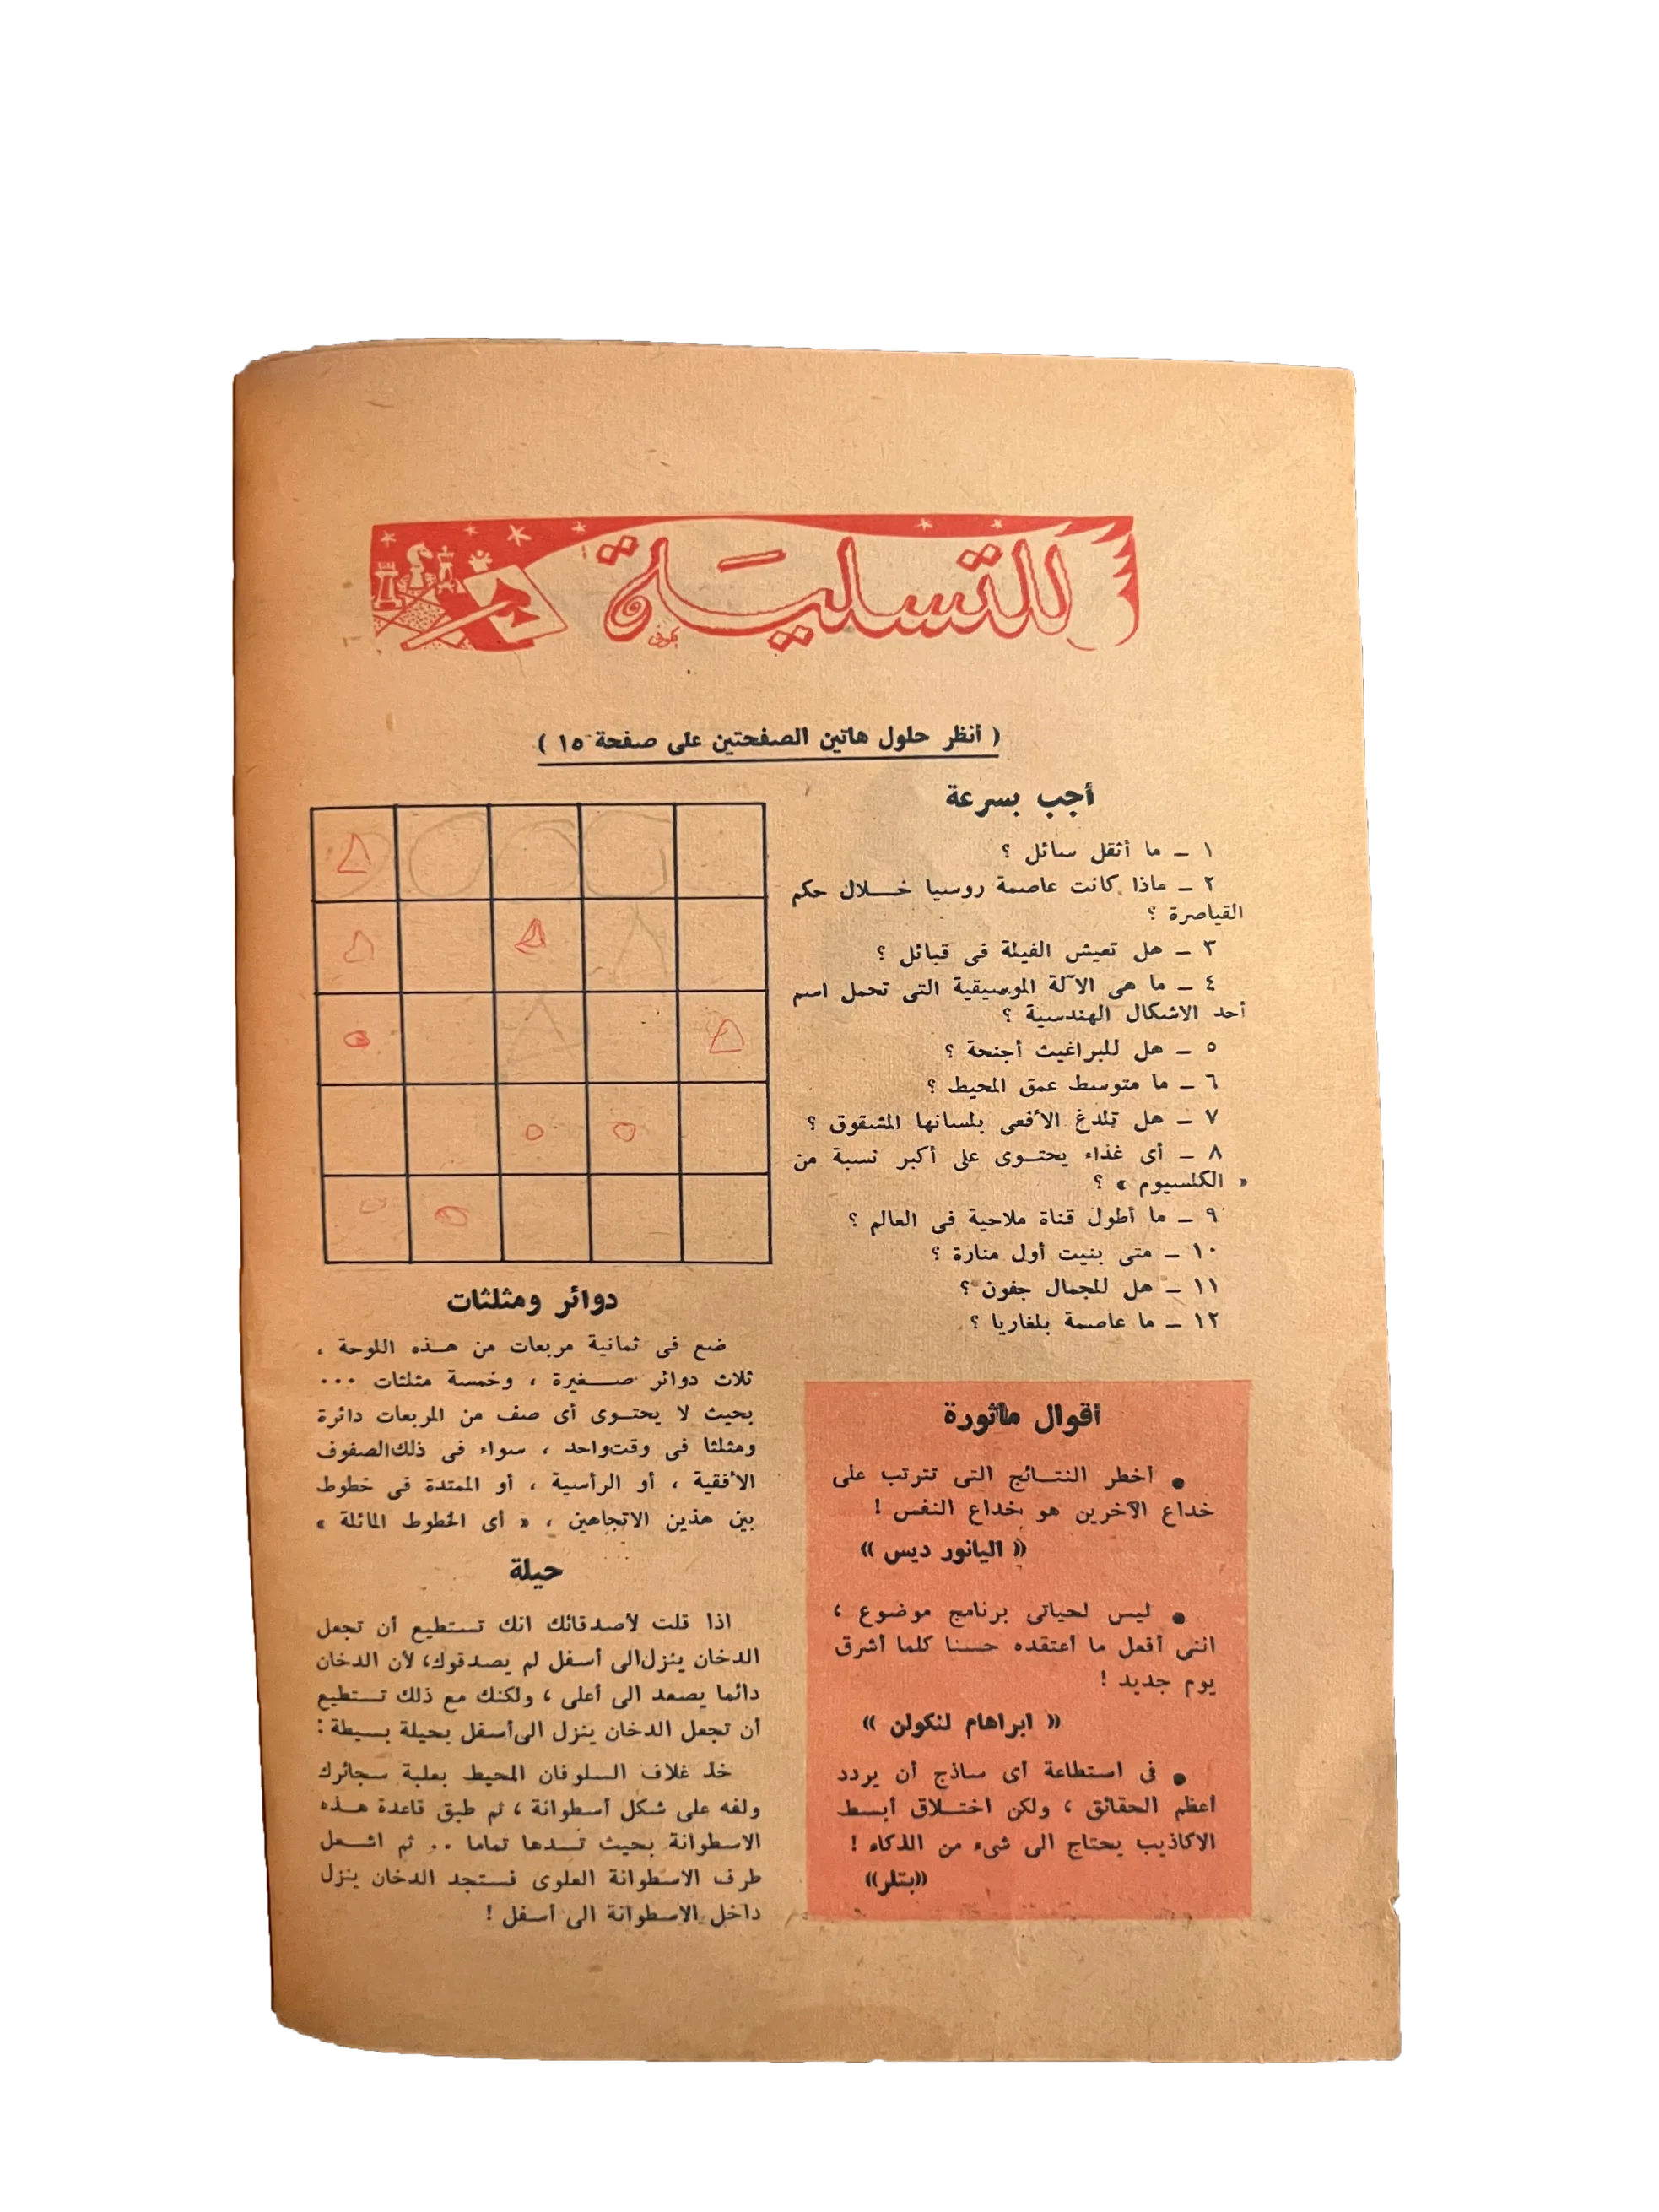 للتسلية
( أنظر حلول هاتين الصفحتين على صفحة ١٥ )
أجب بسرعة
١ ـ ما أثقل سائل ؟
٢ ـ ماذا كانت عاصمة روسيا خلال حكم
القياصرة ؟
٣ ـ هل تعيش الفيلة فى قبائل ؟
٤ ـ ما هى الآلة الموسيقية التى تحمل اسم
أحد الاشكال الهندسية ؟
٥ ـ هل للبراغيث أجنحة ؟
٦ ـ ما متوسط عمق المحيط ؟
٧ ـ هل تلدغ الأفعى بلسانها المشقوق ؟
٨ ـ أى غذاء يحتوى على أكبر نسبة من
« الكلسيوم » ؟
٩ ـ ما أطول قناة ملاحية فى العالم ؟
١٠ ـ متى بنيت أول منارة ؟
١١ ـ هل للجمال جفون ؟
١٢ ـ ما عاصمة بلغاريا ؟
أقوال مأثورة
● أخطر النتائج التى تترتب على
خداع الآخرين هو خداع النفس !
« اليانور ديس »
● ليس لحياتى برنامج موضوع ،
اننى أفعل ما أعتقده حسنا كلما أشرق
يوم جديد !
« ابراهام لنكولن »
● فى استطاعة أى ساذج أن يردد
أعظم الحقائق ، ولكن اختلاق أبسط
الاكاذيب يحتاج الى شىء من الذكاء !
«بتلر»
دوائر ومثلثات
ضع فى ثمانية مربعات من هذه اللوحة ،
ثلاث دوائر صغيرة ، وخمسة مثلثات ...
بحيث لا يحتوى أى صف من المربعات دائرة
ومثلثا فى وقت واحد ، سواء فى ذلك الصفوف
الأفقية ، أو الرأسية ، أو الممتدة فى خطوط
بين هذين الاتجاهين ، « أى الخطوط المائلة »
حيلة
اذا قلت لأصدقائك انك تستطيع أن تجعل
الدخان ينزل الى أسفل لم يصدقوك، لأن الدخان
دائما يصعد الى أعلى ، ولكنك مع ذلك تستطيع
أن تجعل الدخان ينزل الى أسفل بحيلة بسيطة :
خذ غلاف السلوفان المحيط بعلبة سجائرك
ولفه على شكل أسطوانة ، ثم طبق قاعدة هذه
الاسطوانة بحيث تسدها تماما .. ثم اشعل
طرف الاسطوانة العلوى فستجد الدخان ينزل
داخل الاسطوانة الى أسفل !